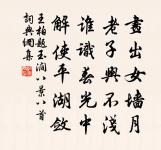 畫出女墻月
老子興不淺
誰識光中
解使平湖斂
王柏題玉澗八景八首
詞典網集